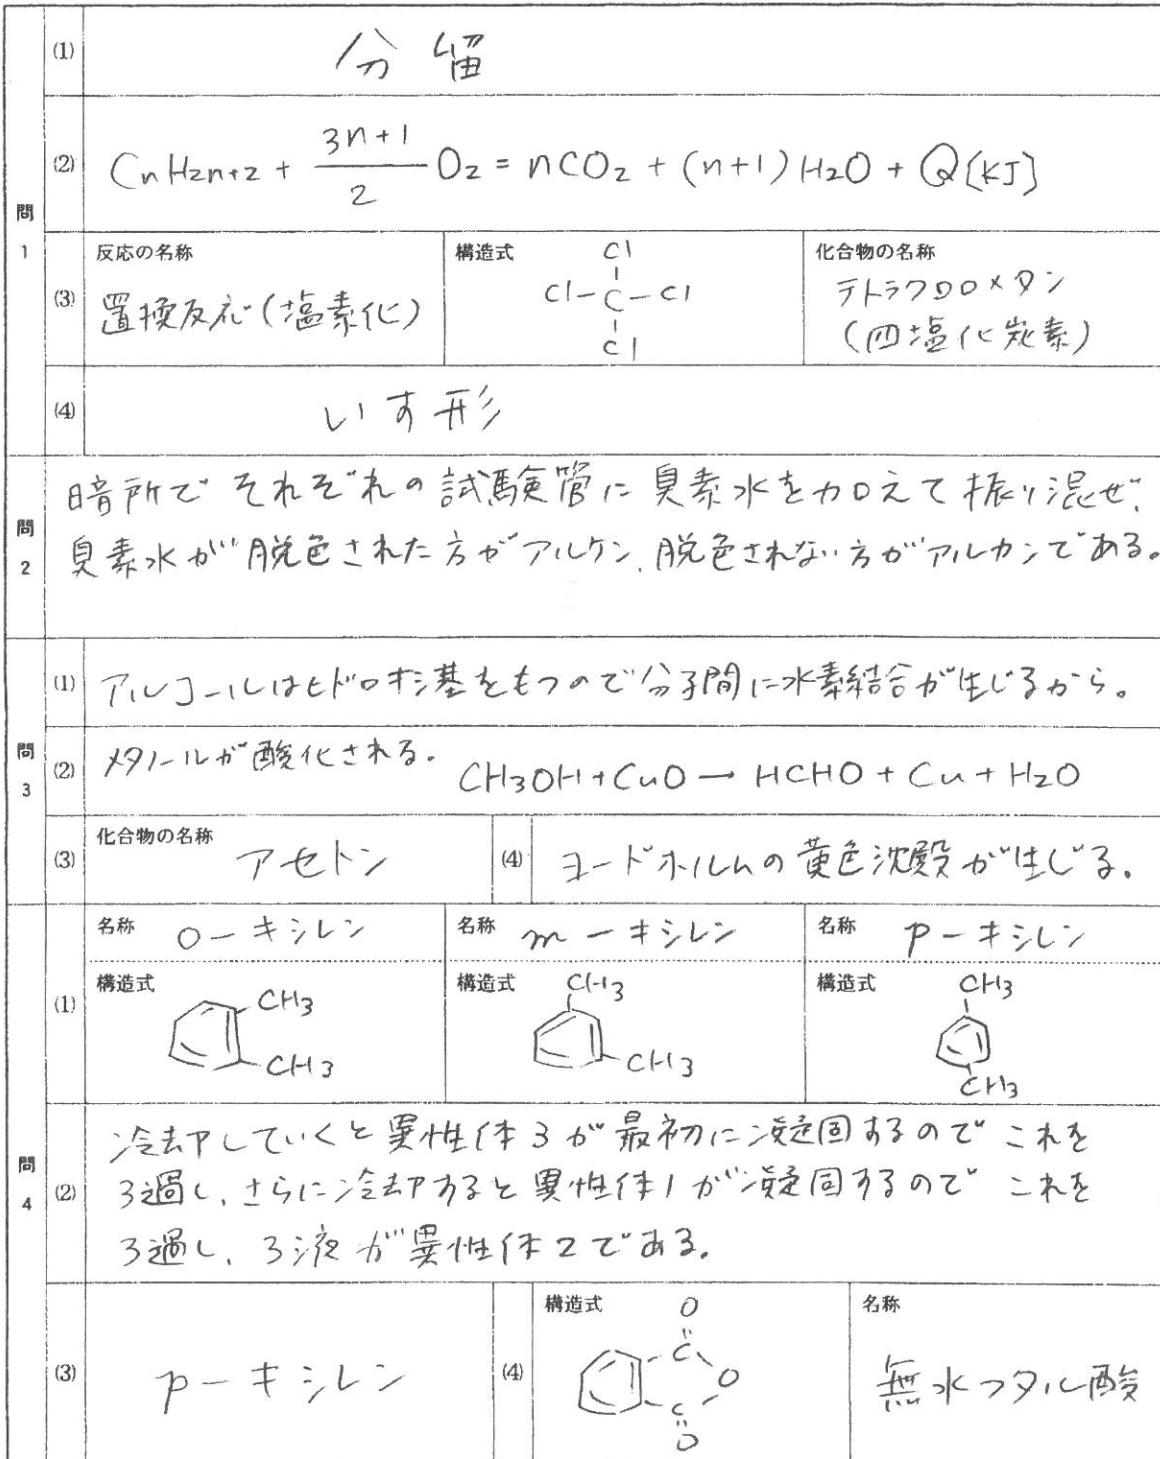 問1
(1) 分留
(2) CnH2n+2 + (3n+1)/2 O2 = nCO2 + (n+1)H2O + Q[KJ]
(3) 反応の名称 構造式 化合物の名称
置換反応(塩素化)
Cl
Cl-C-Cl
Cl
テトラクロロメタン
(四塩化炭素)
(4) いす形
問2
暗所でそれぞれの試験管に臭素水を加えて振り混ぜ、
臭素水が脱色された方がアルケン、脱色されない方がアルカンである。
問3
(1) アルコールはヒドロキシ基をもつので分子間に水素結合が生じるから。
(2) メタノールが酸化される。 CH3OH + CuO → HCHO + Cu + H2O
(3) 化合物の名称 アセトン
(4) ヨードホルムの黄色沈殿が生じる。
問4
(1) 名称 o-キシレン 名称 m-キシレン 名称 p-キシレン
構造式 構造式 構造式
CH3
CH3
CH3
CH3
CH3
CH3
(2) 冷却していくと異性体3が最初に凝固するのでこれを
ろ過し、さらに冷却すると異性体1が凝固するのでこれを
ろ過し、ろ液が異性体2である。
(3) p-キシレン
(4) 構造式 名称
O
C
O
C
O
無水フタル酸